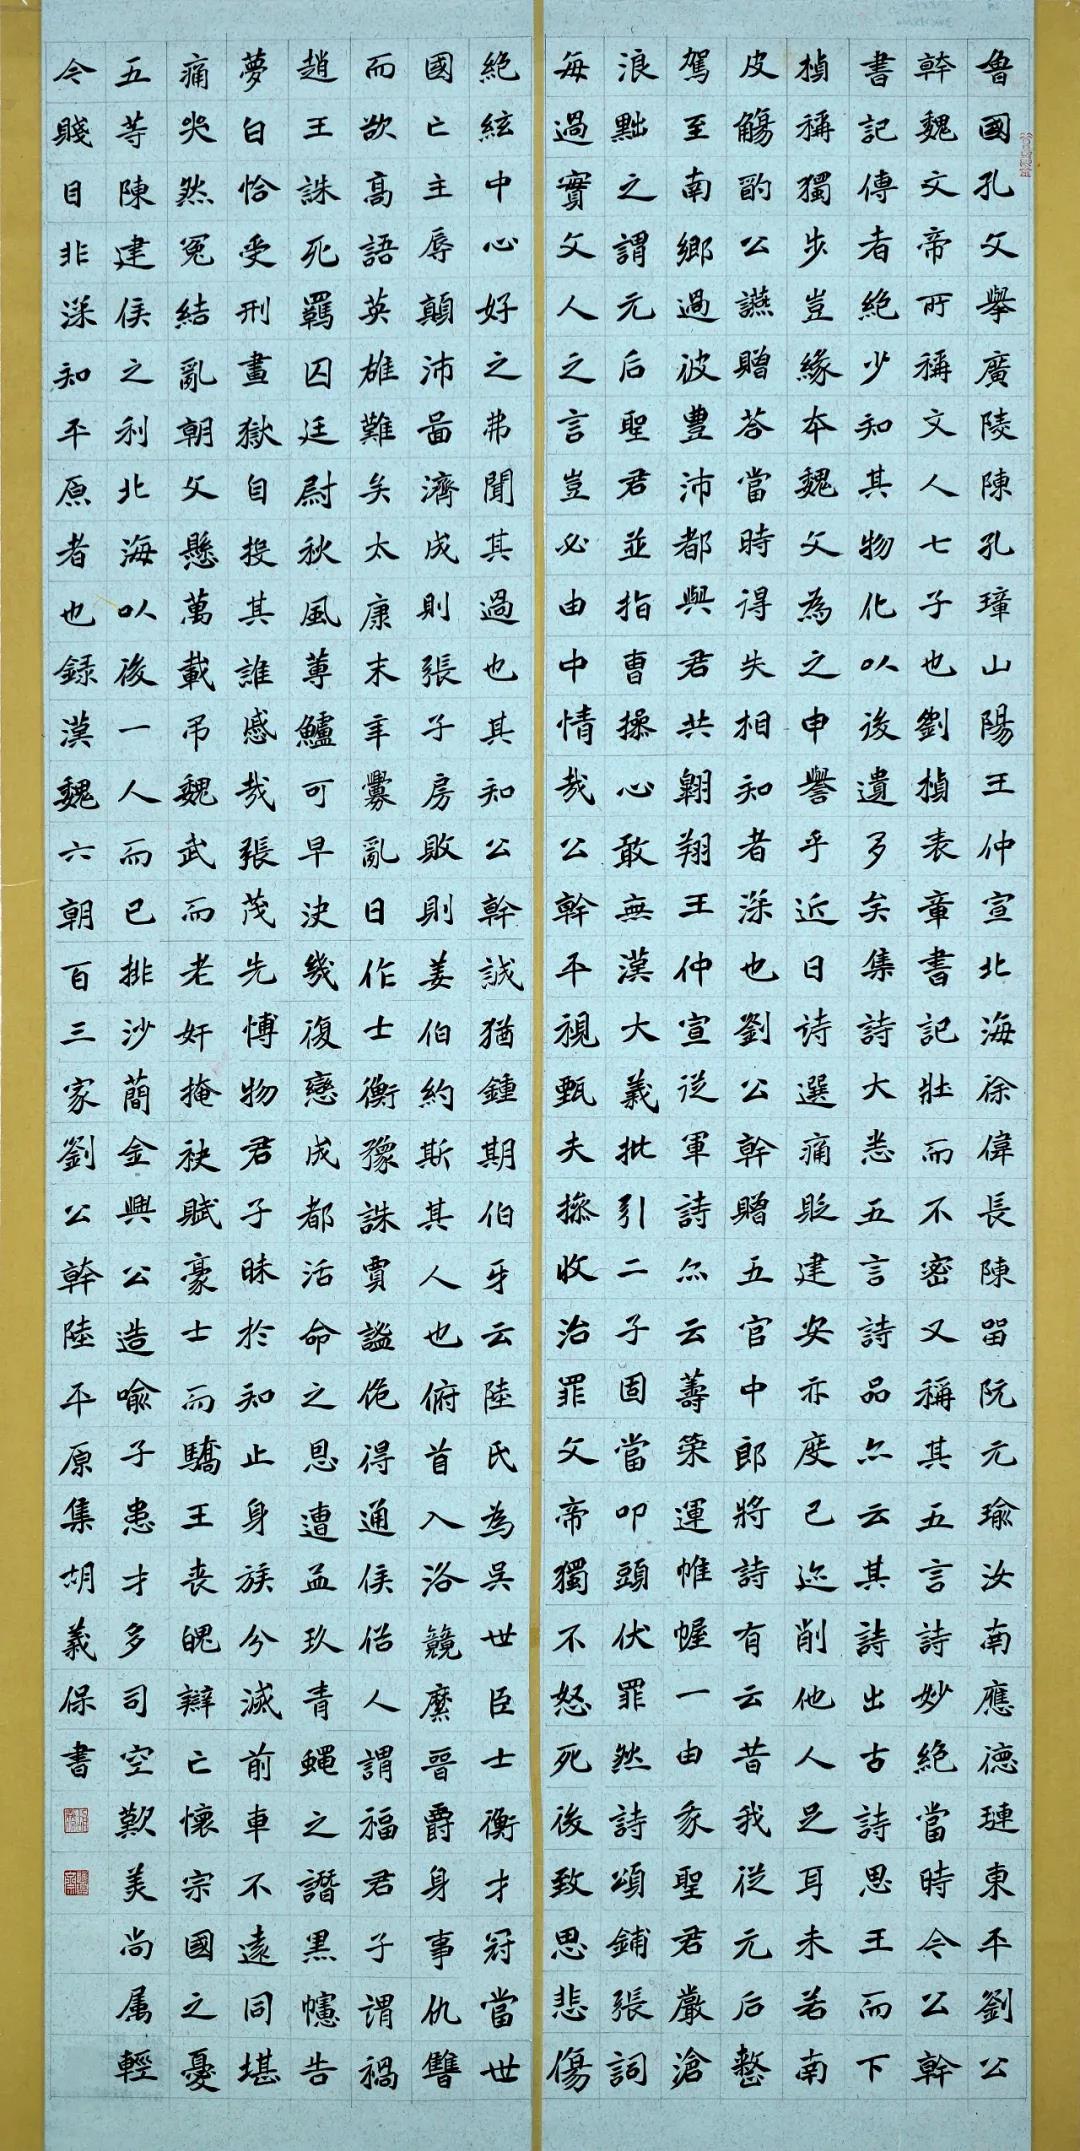 魯國孔文舉廣陵陳孔璋山陽王仲宣北海徐偉長陳留阮元瑜汝南應德璉東平劉公
幹魏文帝所稱文人七子也劉楨表章書記壯而不密又稱其五言詩妙絕當時今公幹
書記傳者絕少知其物化以後遺多矣集詩大悉五言詩品亦云其詩出古詩思王而下
楨稱獨步豈緣本魏文為之申譽乎近日诗選痛貶建安亦度己迹削他人足耳未若南
皮觴酌公讌贈答當時得失相知者深也劉公幹贈五官中郎將詩有云昔我從元后整
駕至南鄉過彼豐沛都與君共翱翔王仲宣從軍詩亦云籌策運帷幄一由我聖君嚴滄
浪黜之謂元后聖君並指曹操心敢無漢大義批引二子固當叩頭伏罪然詩頌鋪張詞
每過實文人之言豈必由中情哉公幹平視甄夫操收治罪文帝獨不怒死後致思悲傷
絕絃中心好之弗聞其過也其知公幹誠猶鍾期伯牙云陸氏為吳世臣士衡才冠當世
國亡主辱顛沛啚濟成則張子房敗則姜伯約斯其人也俯首入洛競縻晉爵身事仇讐
而欲高語英雄難矣太康末年釁亂日作士衡豫誅賈謐佹得通侯俗人謂福君子謂禍
趙王誅死羈囚廷尉秋風蓴鱸可早決幾復戀成都活命之恩遭孟玖青蠅之譖黑幰告
夢白恰受刑畫獄自投其誰慼哉張茂先博物君子昧於知止身族分滅前車不遠同堪
痛哭然冤結亂朝文懸萬載吊魏武而老奸掩袂賦豪士而驕王喪魄辯亡懷宗國之憂
五等陳建侯之利北海以後一人而已排沙簡金興公造喻子患才多司空歎美尚属輕
今賤目非深知平原者也録漢魏六朝百三家劉公幹陸平原集胡義保書